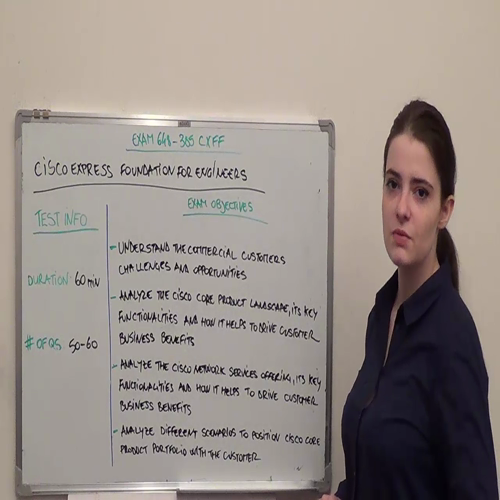 EXAM 648-385 CXFF
CISCO EXPRESS FOUNDATION FOR ENGINEERS
TEST INFO
DURATION: 60 min
# OF QS: 50-60
EXAM OBJECTIVES
- UNDERSTAND THE COMMERCIAL CUSTOMERS
CHALLENGES AND OPPORTUNITIES
- ANALYZE THE CISCO CORE PRODUCT LANDSCAPE, ITS KEY
FUNCTIONALITIES AND HOW IT HELPS TO DRIVE CUSTOMER
BUSINESS BENEFITS
- ANALYZE THE CISCO NETWORK SERVICES OFFERING, ITS KEY
FUNCTIONALITIES AND HOW IT HELPS TO DRIVE CUSTOMER
BUSINESS BENEFITS
- ANALYZE DIFFERENT SCENARIOS TO POSITION CISCO CORE
PRODUCT PORTFOLIO WITH THE CUSTOMER